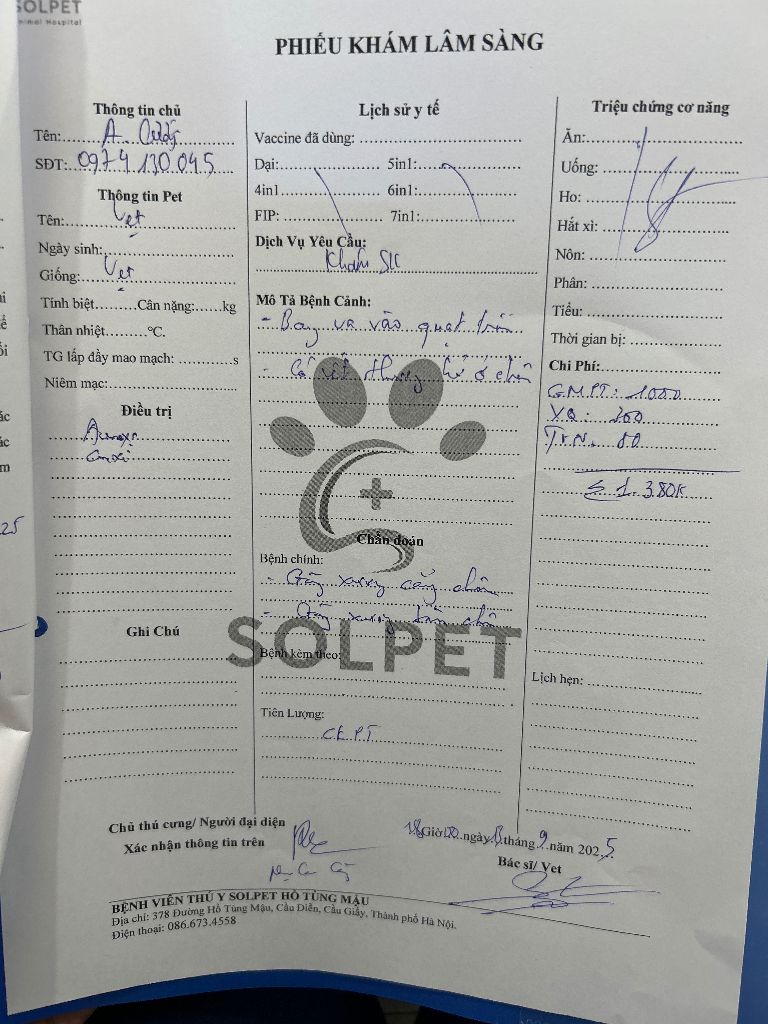 SOLPET
Animal Hospital
PHIẾU KHÁM LÂM SÀNG
Thông tin chủ
Tên: A
SĐT: 0974 130 045
Thông tin Pet
Tên: Vẹt
Ngày sinh:
Giống: Vẹt
Tính biệt Cân nặng: kg
Thân nhiệt °C.
TG lấp đầy mao mạch: s
Niêm mạc:
Điều trị
Ghi Chú
Lịch sử y tế
Vaccine đã dùng:
Dại: 5in1:
4in1 6in1:
FIP: 7in1:
Dịch Vụ Yêu Cầu:
Khám SK
Mô Tả Bệnh Cảnh:
- Bay va vào quạt trần
- Có vết thương hở ở chân
Chẩn đoán
Bệnh chính:
- Gãy xương cẳng chân
- Gãy xương bàn chân
SOLPET
Bệnh kèm theo:
Tiên Lượng:
CEPT
Triệu chứng cơ năng
Ăn:
Uống:
Ho:
Hắt xì:
Nôn:
Phân:
Tiểu:
Thời gian bị:
Chi Phí:
GMPT: 1000
XQ: 300
TVN. 80
1.380K
Lịch hẹn:
Chủ thú cưng/ Người đại diện
Xác nhận thông tin trên
18 Giờ 00 ngày tháng 9 năm 2025
Bác sĩ/ Vet
BỆNH VIỆN THÚ Y SOLPET HỒ TÙNG MẬU
Địa chỉ: 378 Đường Hồ Tùng Mậu, Cầu Diễn, Cầu Giấy, Thành phố Hà Nội.
Điện thoại: 086.673.4558